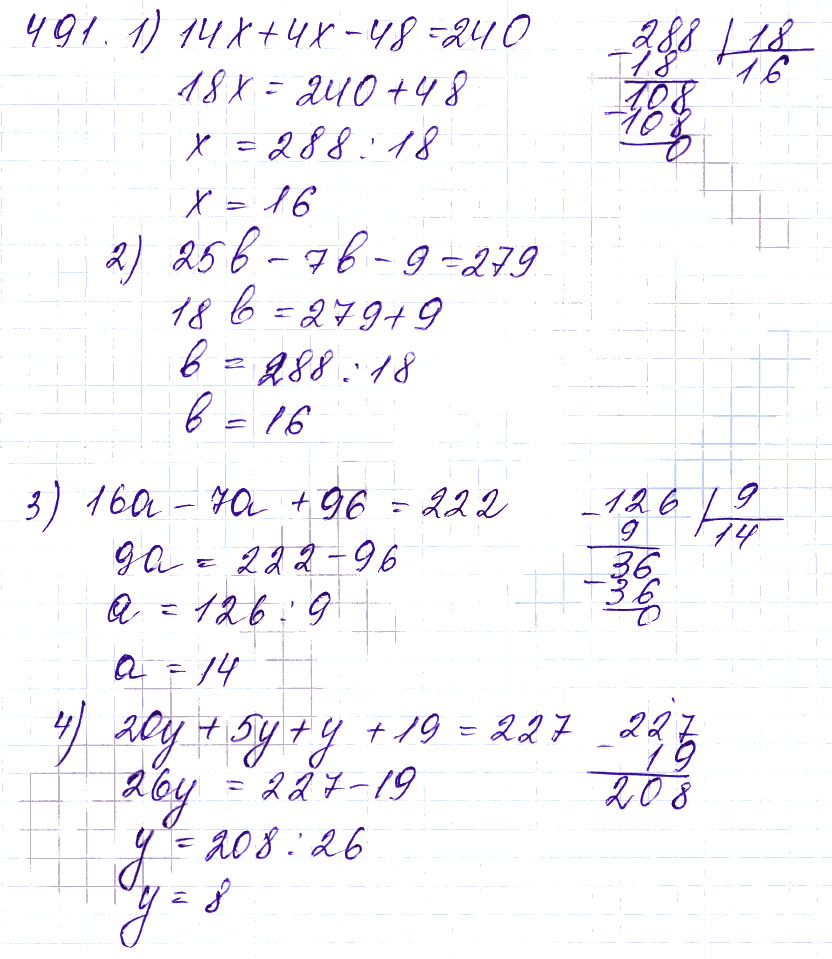 491. 1) 14x + 4x - 48 = 240
18x = 240 + 48
x = 288 : 18
x = 16
288 | 18
- 18
16
108
- 108
0
2) 25в - 7в - 9 = 279
18в = 279 + 9
в = 288 : 18
в = 16
3) 16a - 7a + 96 = 222
9a = 222 - 96
a = 126 : 9
a = 14
- 126 | 9
9
14
36
- 36
0
4) 20y + 5y + y + 19 = 227
26y = 227 - 19
y = 208 : 26
y = 8
227
- 19
208